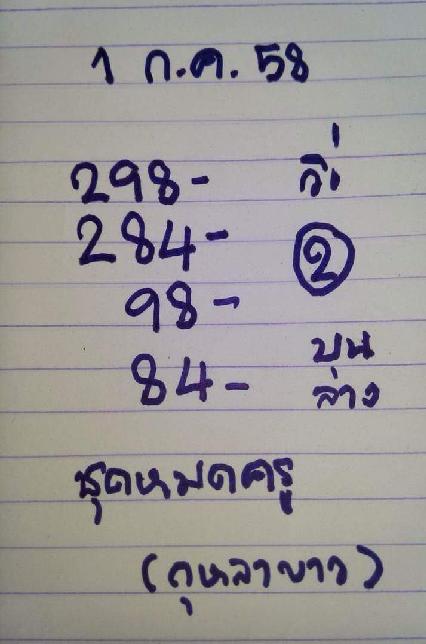 1 ก.ค. 58
298- วิ่
284- ②
98- บน
84- ล่าง
ชุดหมดครู
(กุหลาบขาว)